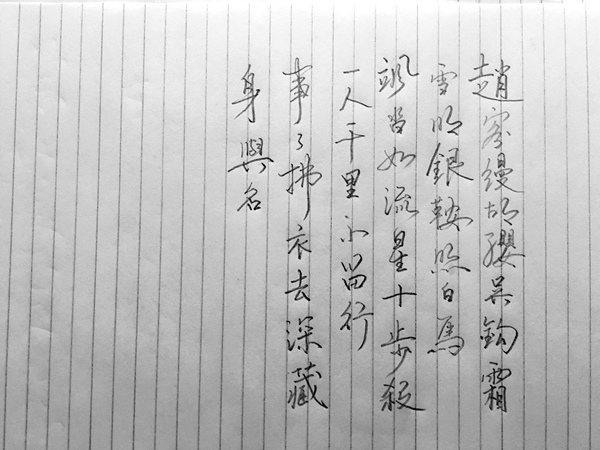 趙客縵胡纓吳鈎霜
雪明銀鞍照白馬
颯沓如流星十步殺
一人千里不留行
事了拂衣去深藏
身與名